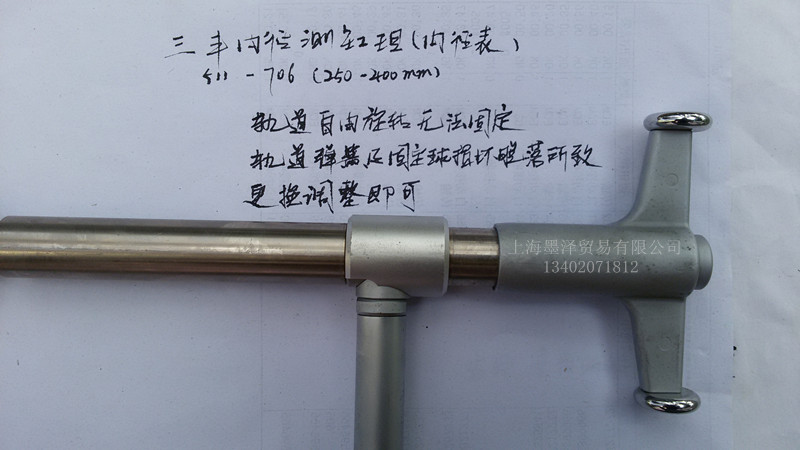 三丰内径测缸理(内径表)
511-706 (250-400mm)
轨道自由旋转无法固定
轨道弹簧及固定球损坏脱落所致
更换调整即可
上海墨泽贸易有限公司
13402071812